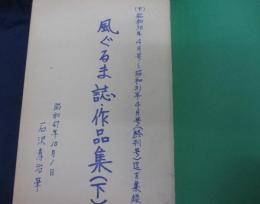 (下)昭和30年4月号~昭和31年4月号(終刊号)迄百集録
風ぐるま誌・作品集(下)
昭和47年10月1日
石沢